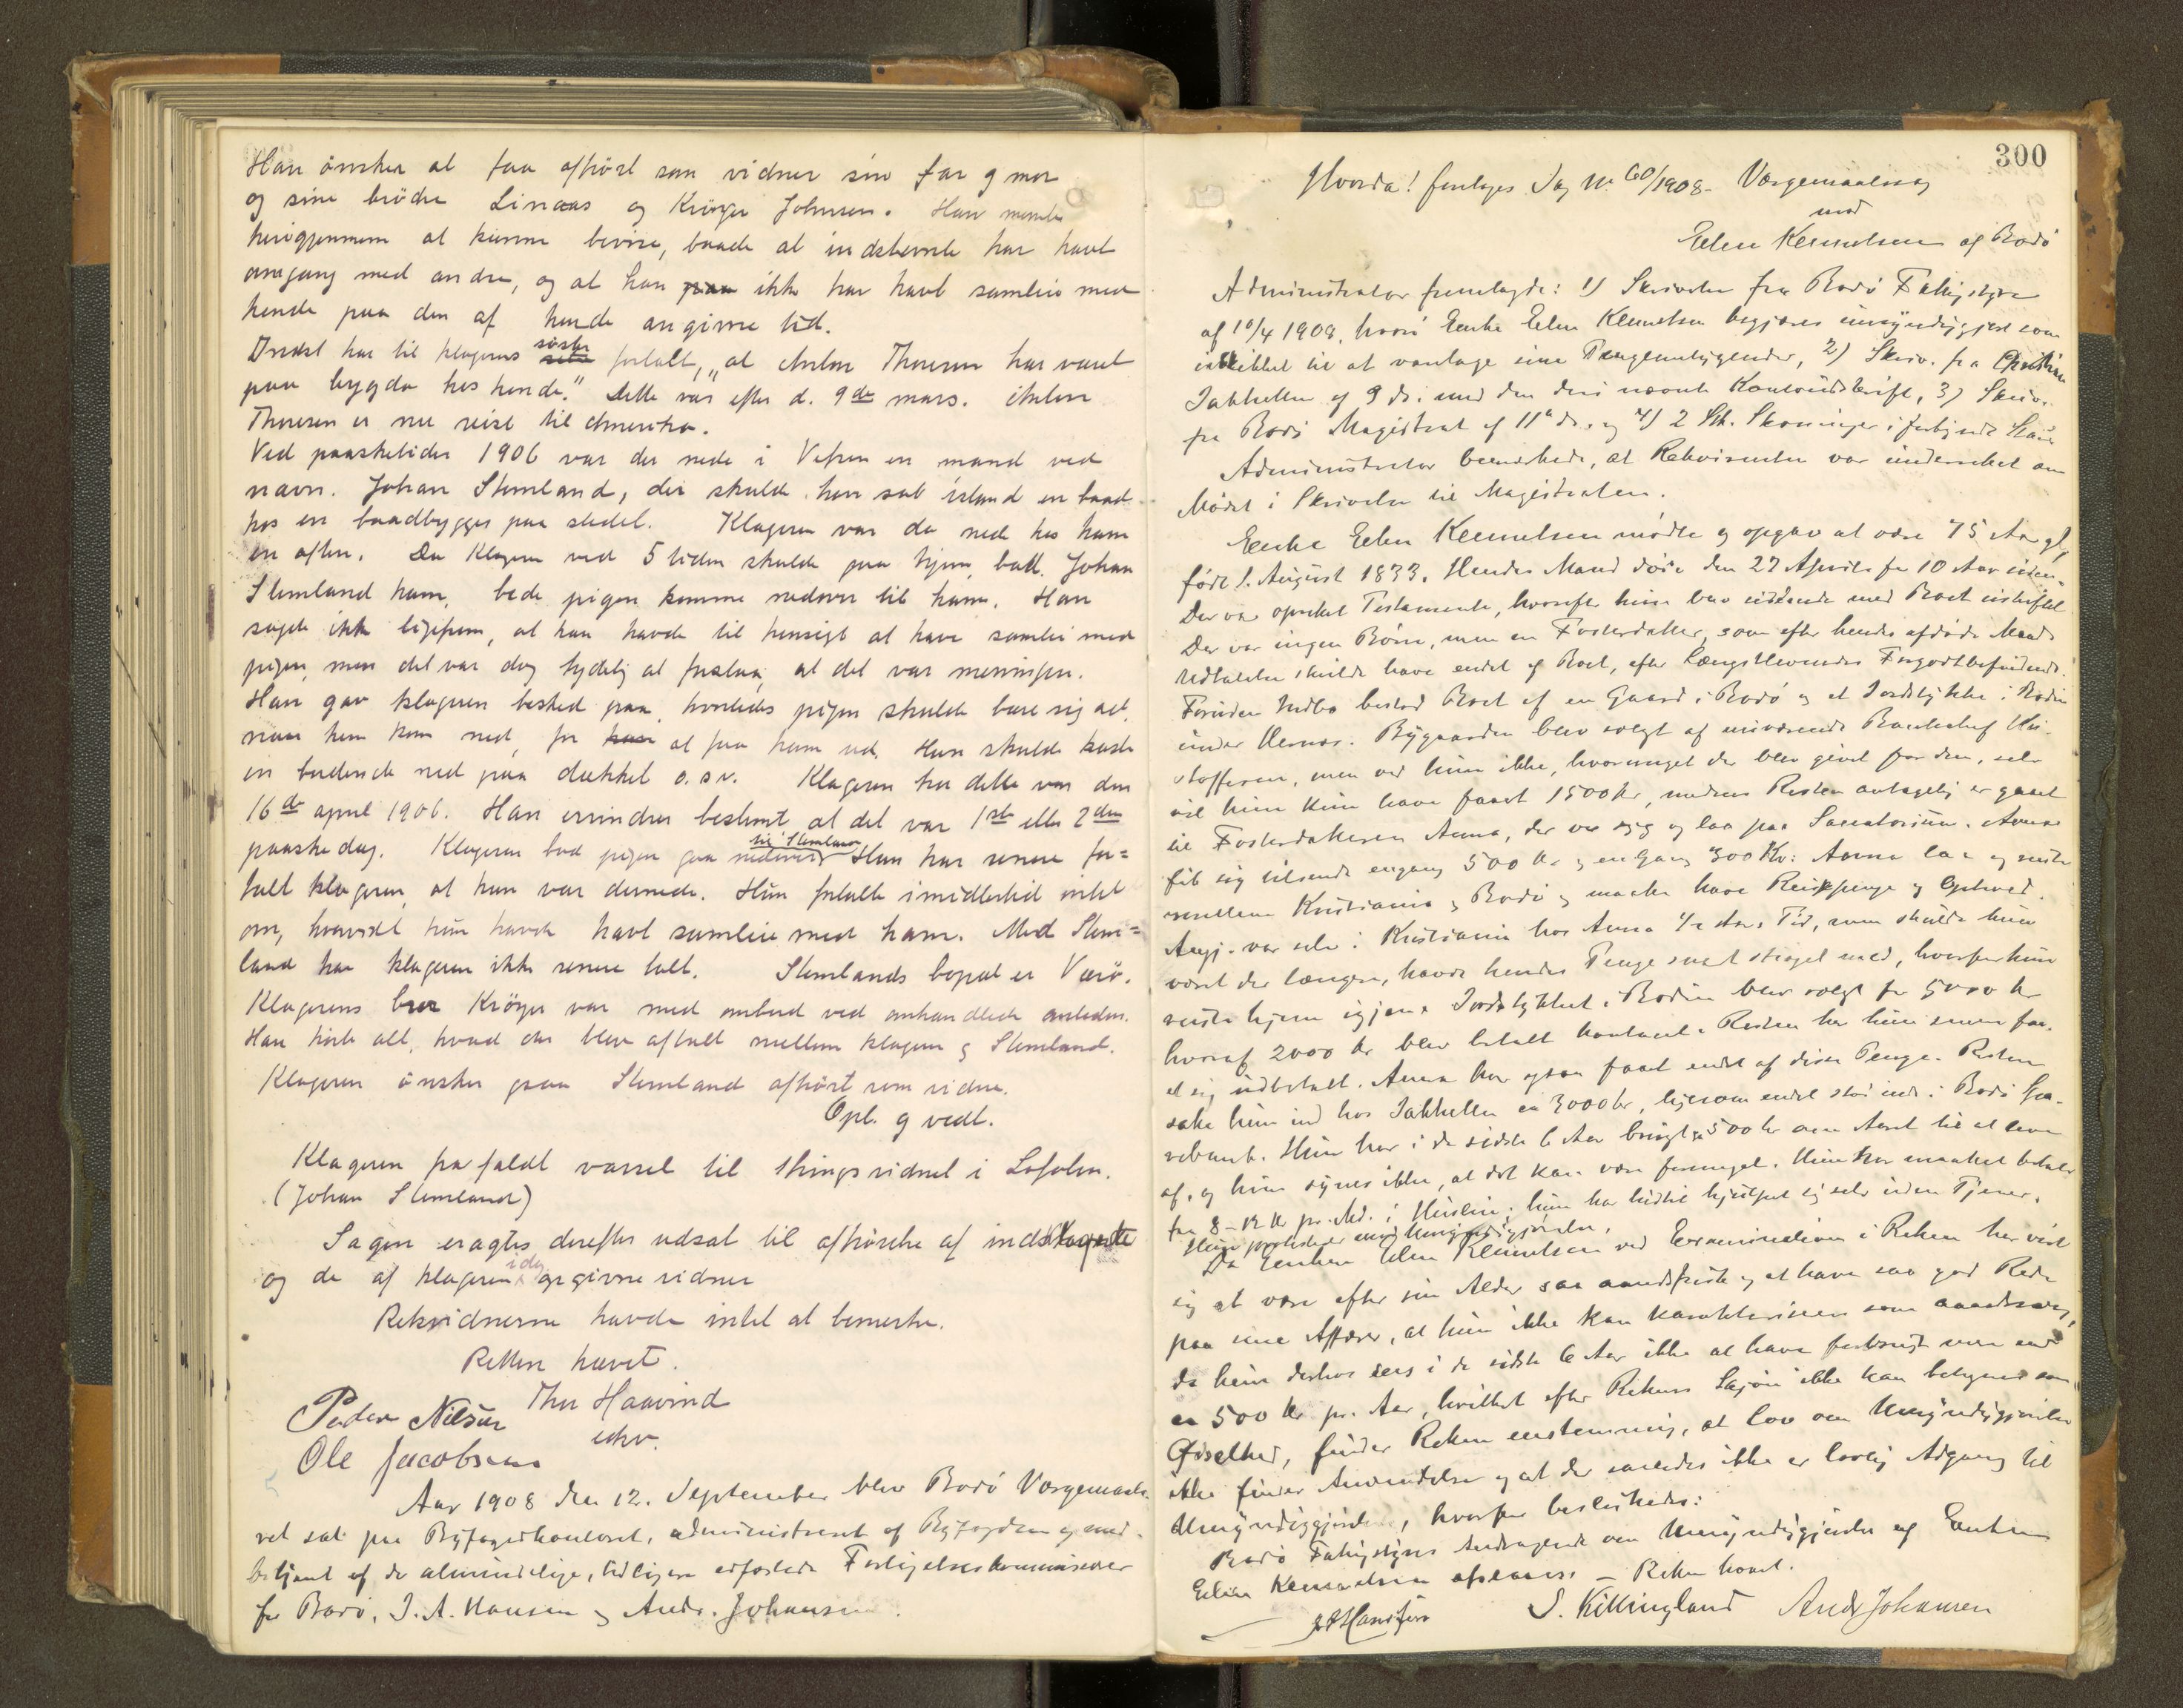 Han ønsker at faa afhørt som vidner sin far og mor
og sine brødre Linaas og Krøger Johnsen. Han mener
herigjennem at kunne bevise, baade at indstevnte har havt
omgang med andre, og at han paa ikke har havt samleie med
hende paa den af hende angivne tid.
Indst har til klagerens søster fortalt, "at Anton Thoresen har været
paa bygda hos hende." Dette var efter d. 9de mars. Anton
Thoresen er nu reist til Amerika.
Ved paasketider 1906 var der nede i Vefsen en mand ved
navn Johan Stemland, der skulde han sat istand en baad
hos en baadbygger paa stedet. Klageren var da nede hos ham
en aften. Da Klageren ved 5 tiden skulde gaa hjem, bad Johan
Stemland ham, bede pigen komme nedover til ham. Han
sagde ikke ligefrem, at han havde til hensigt at have samleie med
pigen, men det var dog tydelig at forstaa, at det var meningen.
Han gav klageren besked paa, hvorledes pigen skulde bære sig ad,
naar hun kom ned, for at faa ham ud. Hun skulde kaste
en ned paa dækket o.s.v. Klageren tror dette var den
16de april 1906. Han erindrer bestemt at det var 1ste eller 2den
paaskedag. Klageren bad pigen gaa nedover til Stemland Hun har senere for=
talt klageren, at hun var dernede. Hun fortalte imidlertid intet
om, hvorvidt hun havde havt samleie med ham. Med Stem=
land har klageren ikke senere talt. Stemlands bopæl er Værø.
Klagerens bror Krøger var med ombord ved omhandlede anledn.
Han hørte alt, hvad der blev aftalt mellem klageren og Stemland.
Klageren ønsker ogsaa Stemland afhørt som vidne.
Opl. og vedt.
Klageren frafaldt varsel til thingsvidnet i Lofoten.
(Johan Stemland)
Sagen eragtes derefter udsat til afhørelse af indklagede
og de af klageren idag opgivne vidner
Retsvidnerne havde intet at bemerke.
Retten hævet.
Thv Haavind
edsv.
Peder Nilsen
Ole Jacobsen
Aar 1908 den 12. September blev Bodø Værgemaals-
ret sat paa Byfogedkontoret, administreret af Byfogden og med-
betjent af de almindelige, tidligere edfæstede Forligelseskommissærer
for Bodø, J. A. Hansen og Andr. Johansen.
300
Hvorda! foretages Sag No 60/1908. Værgemaalssag
mod
Elen Klemetsen af Bodø
Administrator fremlagde: 1) Skrivelse fra Bodø Fattigstyre
af 10/4 1908, hvori Enke Elen Klemetsen begjæres umyndiggjort som
uskikket til at varetage sine Pengeanliggender, 2) Skriv. fra Christian
Jakhelln af 9 ds. med den deri nævnte Kontoudskrift, 3) Skriv.
fra Bodø Magistrat af 11te ds. og 4) 2 Stk.
Administrator bemærkede, at Rekvirenten var underrettet om
Mødet i Skrivelse til Magistraten.
Enke Elen Klemetsen mødte og opgav at være 75 Aar gl,
født 1. August 1833. Hendes Mand døde den 27 April for 10 Aar siden.
Der var oprettet Testamente, hvorefter hun blev siddende med Boet uskiftet
Der var ingen Børn, men en Fosterdatter, som efter hendes afdøde Mands
Udtalelse skulde have endel af Boet, efter Længstlevendes Forgodtbefindende.
Foruden Indbo bestod Boet af en Gaard i Bodø og et Jordstykke i Bodin
under Hernes. Bygaarden blev solgt af nuværende Bankchef
men ved hun ikke, hvormeget der blev givet for den, selv
vil hun kun have faaet 1500 kr, medens Resten antagelig er gaaet
til Fosterdatteren Anna, der var syg og laa paa Sanatorium. Anna
fik sig tilsendt engang 500 kr og engang 300 Kr: Anna laa og reiste
mellem Kristiania og Bodø og maatte have Reisepenge og Ophold.
Angj. var selv i Kristiania hos Anna 1/2 Aars Tid, men skulde hun
været der længere, havde hendes Penge snart strøget med, hvorfor hun
reiste hjem igjen. Jordstykket i Bodin blev solgt for 5000 kr
hvoraf 2000 kr blev betalt kontant. Resten har hun senere faa-
et sig udbetalt. Anna har ogsaa faaet endel af disse Penge. Resten
satte hun ind hos Jakhelln ca 3000 kr, ligesom endel stod inde i Bodø Spa-
rebank. Hun har i de sidste 6 Aar brugt ca 500 kr om Aaret til at leve
af, og hun synes ikke, at det kan være formeget. Hun har maattet betale
fra 8-12 kr pr. Md. i Husleie; hun har hidtil hjulpet sig selv uden Tjener.
Hun protesterer mod Umyndiggjørelse.
Da Enken Elen Klemetsen ved Examinationen i Retten har vist
sig at være efter sin Alder saa aandsfrisk og at have saa god Rede
paa sine Affærer, at hun ikke kan karakteriseres som aandssvag,
da hun derhos sees i de sidste 6 Aar ikke at have forbrugt mere end
ca 500 kr pr. Aar, hvilket efter Rettens Skjøn ikke kan betegnes som
Ødselhed, finder Retten enstemmig, at Lov om Umyndiggjørelse
ikke finder Anvendelse og at der saaledes ikke er lovlig Adgang til
Umyndiggjørelse, hvorfor besluttedes:
Bodø Fattigstyres Andragende om Umyndiggjørelse af Enken
Elen Klemetsen afslaaes. - Retten hævet.
J A Hansen S. Killingland Andr Johansen